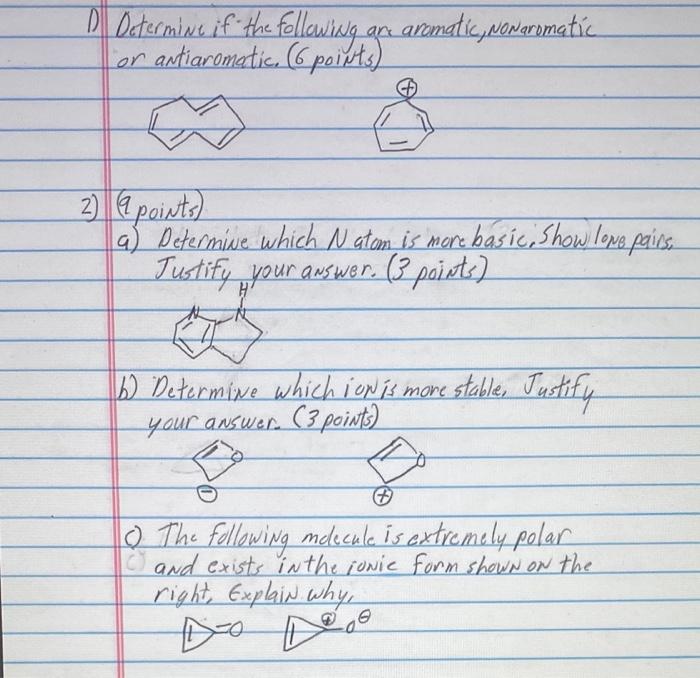 1) Determine if the following are aromatic, nonaromatic
or antiaromatic. (6 points)
+
2) (9 points)
a) Determine which N atom is more basic. Show lone pairs.
Justify your answer. (3 points)
H
N N
b) Determine which ion is more stable. Justify
your answer. (3 points)
O O
- +
c) The following molecule is extremely polar
and exists in the ionic form shown on the
right. Explain why.
=O + O-